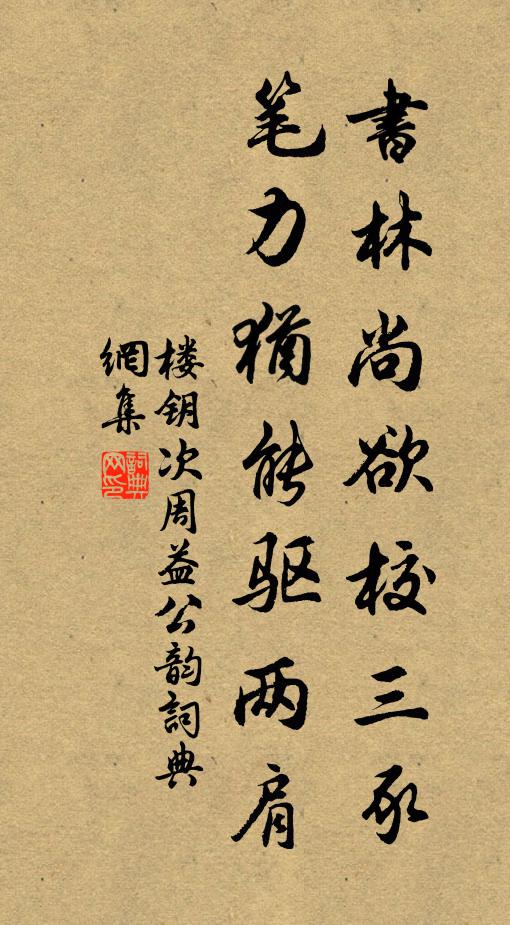 書林尚欲校三豕
笔力猶能驱两肩
楼钥次周益公韵詞典
網集
詞典
网印